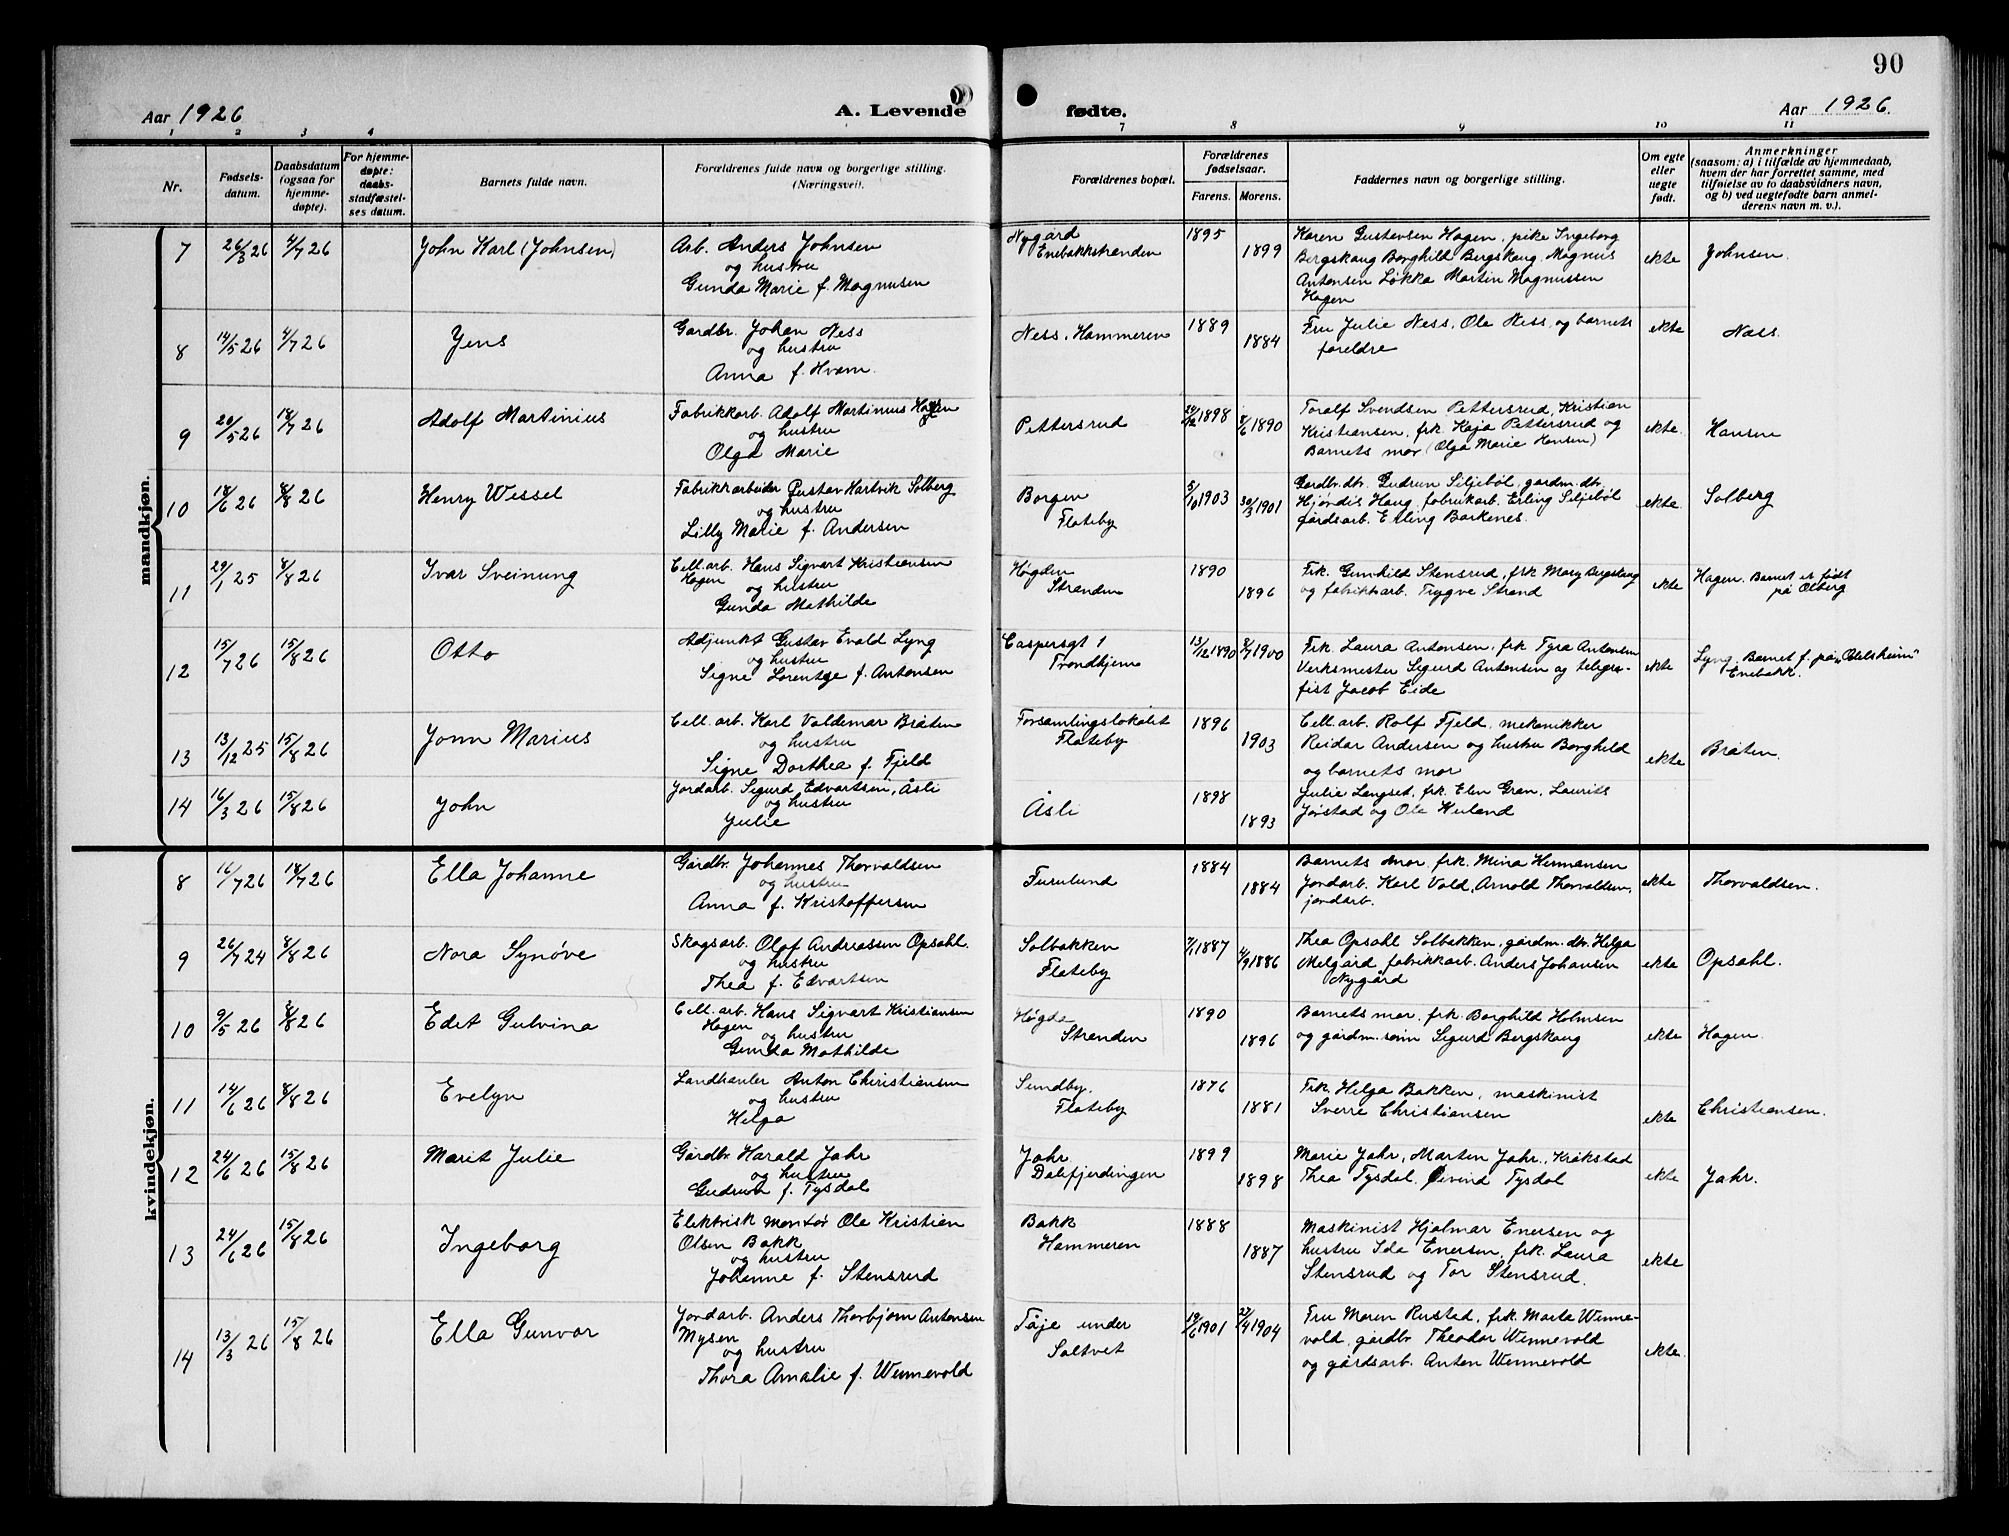 90
Aar 1926
A. Levende
fødte.
Aar 1926.
1 2 3 4 7 8 9 10 11
Nr.
Fødsels-
datum.
Daabsdatum
(ogsaa for
hjemme-
døpte).
For hjemme-
døpte:
daabs-
stadfæstel-
ses datum.
Barnets fulde navn.
Forældrenes fulde navn og borgerlige stilling.
(Næringsvei).
Forældrenes bopæl.
Forældrenes
fødselsaar.
Farens. Morens.
Faddernes navn og borgerlige stilling.
Om egte
eller
uegte
født.
Anmerkninger
(saasom: a) i tilfælde av hjemmedaab,
hvem der har forrettet samme, med
tilføielse av to daabsvidners navn,
og b) ved uegtefødte barn anmel-
derens navn m. v.).
mandkjøn.
7 26/3 26 4/7 26 John Karl (Johnsen)
Arb. Anders Johnsen
og hustru
Gunda Marie f. Magnusen
Nygård
Enebakkstranden
1895
1899
Karen Gustavsen Hagen, pike Ingeborg
Bergskaug Borghild Bergskaug, Magnus
Antonsen Løkka Martin Magnussen
Hagen
ekte
Johnsen.
8 14/5 26 4/7 26 Jens
Gardbr. Johan Ness
og hustru
Anna f. Hvam.
Ness, Hammeren
1889
1884
Fru Julie Ness, Ole Ness, og barnets
foreldre
ekte
Næss.
9 20/5 26 18/7 26 Adolf Martinius
Fabrikkarb. Adolf Martinius Hansen
og hustru
Olga Marie
Pettersrud
24/12 1898
8/6 1890
Toralf Svendsen Pettersrud, Kristian
Kristiansen, frk. Kaja Pettersrud og
Barnets mor (Olga Marie Hansen)
ekte.
Hansen
10 18/6 26 8/8 26 Henry Wessel
Fabrikkarbeider Gustav Hartvik Solberg
og hustru
Lilly Marie f. Andersen
Borgen
Flateby
5/10 1903
30/3 1901
Gardbr. dtr. Gudrun Siljeböl, gardm. dtr.
Hjördis Haug, fabrikarb. Erling Siljeböl
gårdsarb. Erling Barkenes.
ekte.
Solberg
11 29/1 25 8/8 26 Ivar Sveinung
Cell. arb. Hans Sigvart Kristiansen
Hagen
og hustru
Gunda Mathilde
Høgden
Stranden
1890
1896
Frk. Gunhild Stensrud, frk Mary Bergskaug
og fabrikkarb. Trygve Strand
ekte
Hagen. Barnet er født
på Ølberg
12 15/7 26 15/8 26 Otto
Adjunkt Gustav Evald Lyng
og hustru
Signe Lorentze f. Antonsen
Caspersgt 1
Trondhjem
13/12 1890
8/7 1900
Frk. Laura Antonsen, frk Tyra Antonsen
Verksmester Sigurd Antonsen og telegra-
fist Jacob Eide
ekte
Lyng. Barnet f. på "Adelsheim"
Enebakk.
13 13/12 25 15/8 26 Jonn Marius
Cell. arb. Karl Valdemar Bråten
og hustru
Signe Dorthea f. Fjeld
Forsamlingslokalet
Flateby
1896
1903
Cell. arb. Rolf Fjeld, mekanikker
Reidar Andersen og hustru Borghild
og barnets mor
ekte
Bråten.
14 16/3 26 15/8 26 John
Jordarb. Sigurd Edvartsen, Åsli
og hustru
Julie
Åsli
1898
1893
Julie Langset, frk. Elen Gran, Laurits
Jørstad og Ole Weiland
kvindekjøn.
8 16/7 26 18/7 26 Ella Johanne
Gårdbr. Johannes Thorvaldsen
og hustru
Anna f. Kristoffersen
Furulund
1884
1884
Barnets mor, frk. Mina Hermansen
Jordarb. Karl Vold, Arnold Thorvaldsen,
jordarb.
ekte
Thorvaldsen.
9 26/7 24 8/8 26 Nora Synøve
Skogsarb. Olaf Andreassen Opsahl.
og hustru
Thea f. Edvartsen
Solbakken
Flateby
7/1 1887
4/9 1886
Thea Opsahl Solbakken, gårdm. dtr. Helga
Melgård fabrikkarb. Anders Johansen
Nygård
ekte
Opsahl.
10 9/5 26 8/8 26 Edit Gulvina
Cell. arb. Hans Sigvart Kristiansen
Hagen
og hustru
Gunda Mathilde
Høgda
Stranden
1890
1896
Barnets mor, frk. Borghild Holmsen
og gårdm. sønn Sigurd Bergskaug
ekte
Hagen.
11 14/6 26 8/8 26 Evelyn
Landhanler Anton Christiansen
og hustru
Helga
Sundby.
Flateby
1876
1881
Frk. Helga Bakken, maskinist
Sverre Christiansen
ekte
Christiansen.
12 24/6 26 15/8 26 Marit Julie
Gårdbr Harald Jahr
og hustru
Gudrun f. Tysdal
Jahr
Dalefjerdingen
1899
1898
Marie Jahr, Marten Jahr, Kråkstad
Thea Tysdal, Øivind Tysdal
ekte
Jahr.
13 24/6 26 15/8 26 Ingeborg
Elektrisk montør Ole Kristian
Olsen Bakk
og hustru
Johanne f. Stensrud
Bakk
Hammeren
1888
1887
Maskinist Hjalmar Enersen og
hustru Ida Enersen, frk. Laura
Stensrud og Tor Stensrud.
ekte
14 13/3 26 15/8 26 Ella Gunvor
Jordarb. Anders Thorbjørn Antonsen
Mysen
og hustru
Thora Amalie f. Wennevold
Tåje under
Saltvet
19/6 1901
27/4 1904
Fru Maren Rustad, frk. Marta Wenne-
vold, gårdbr Theodor Wennevold
og gårdsarb. Anton Wennevold
ekte.